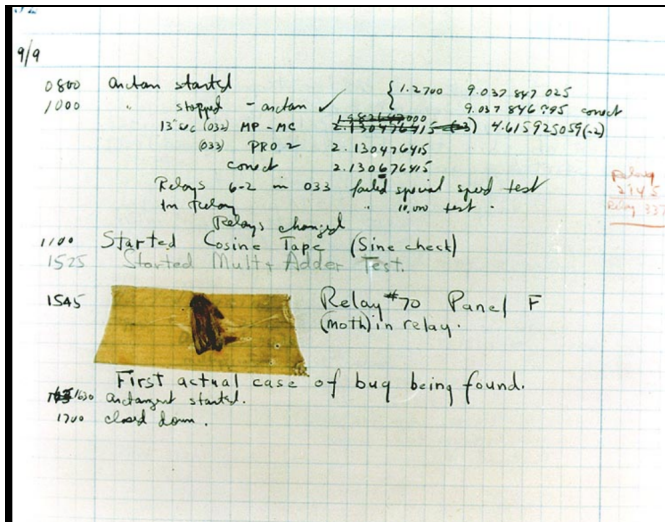 9/9
0800 arctan started { 1.2700 9.037 847 025
1000 " stopped - arctan ✓ 9.037 846 995 conect
13"uc (032) MP - MC 2.130476415 (-3) 4.615925059(-2)
(033) PRO 2 2.130476415
conect 2.130676415
Relays 6-2 in 033 failed special speed test
In Relay " 10,000 test.
Relays changed
Relay
Relay 337
1100 Started Cosine Tape (Sine check)
1525 Started Mult + Adder Test.
1545 Relay #70 Panel F
(moth) in relay.
First actual case of bug being found.
1630 arctangent started.
1700 closed down.